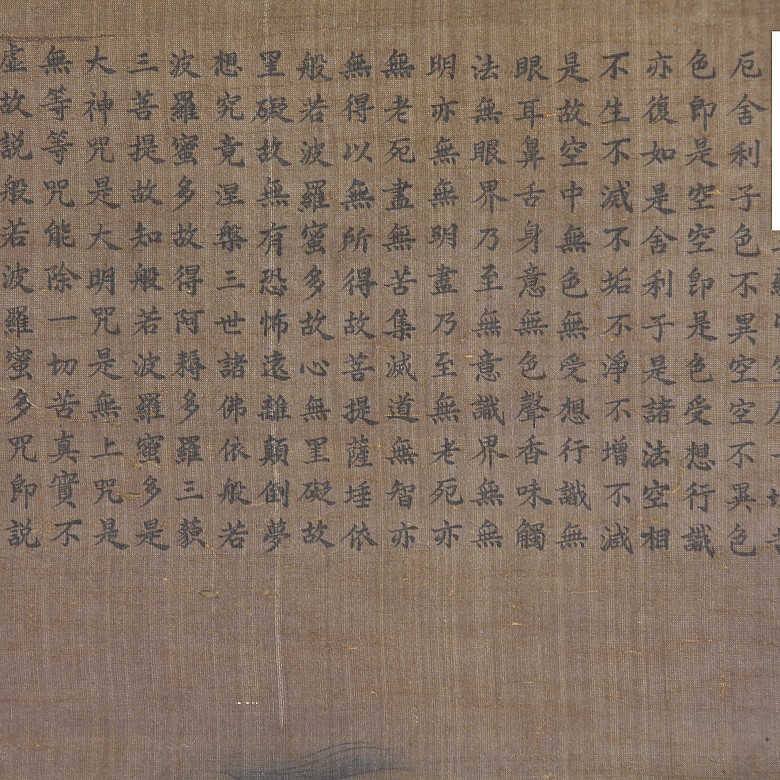 厄舍利子色不異空空不異色
色即是空空即是色受想行識
亦復如是舍利子是諸法空相
不生不滅不垢不淨不增不減
是故空中無色無受想行識無
眼耳鼻舌身意無色聲香味觸
法無眼界乃至無意識界無無
明亦無無明盡乃至無老死亦
無老死盡無苦集滅道無智亦
無得以無所得故菩提薩埵依
般若波羅蜜多故心無罣礙故
罣礙故無有恐怖遠離顛倒夢
想究竟涅槃三世諸佛依般若
波羅蜜多故得阿耨多羅三藐
三菩提故知般若波羅蜜多是
大神咒是大明咒是無上咒是
無等等咒能除一切苦真實不
虛故說般若波羅蜜多咒即說